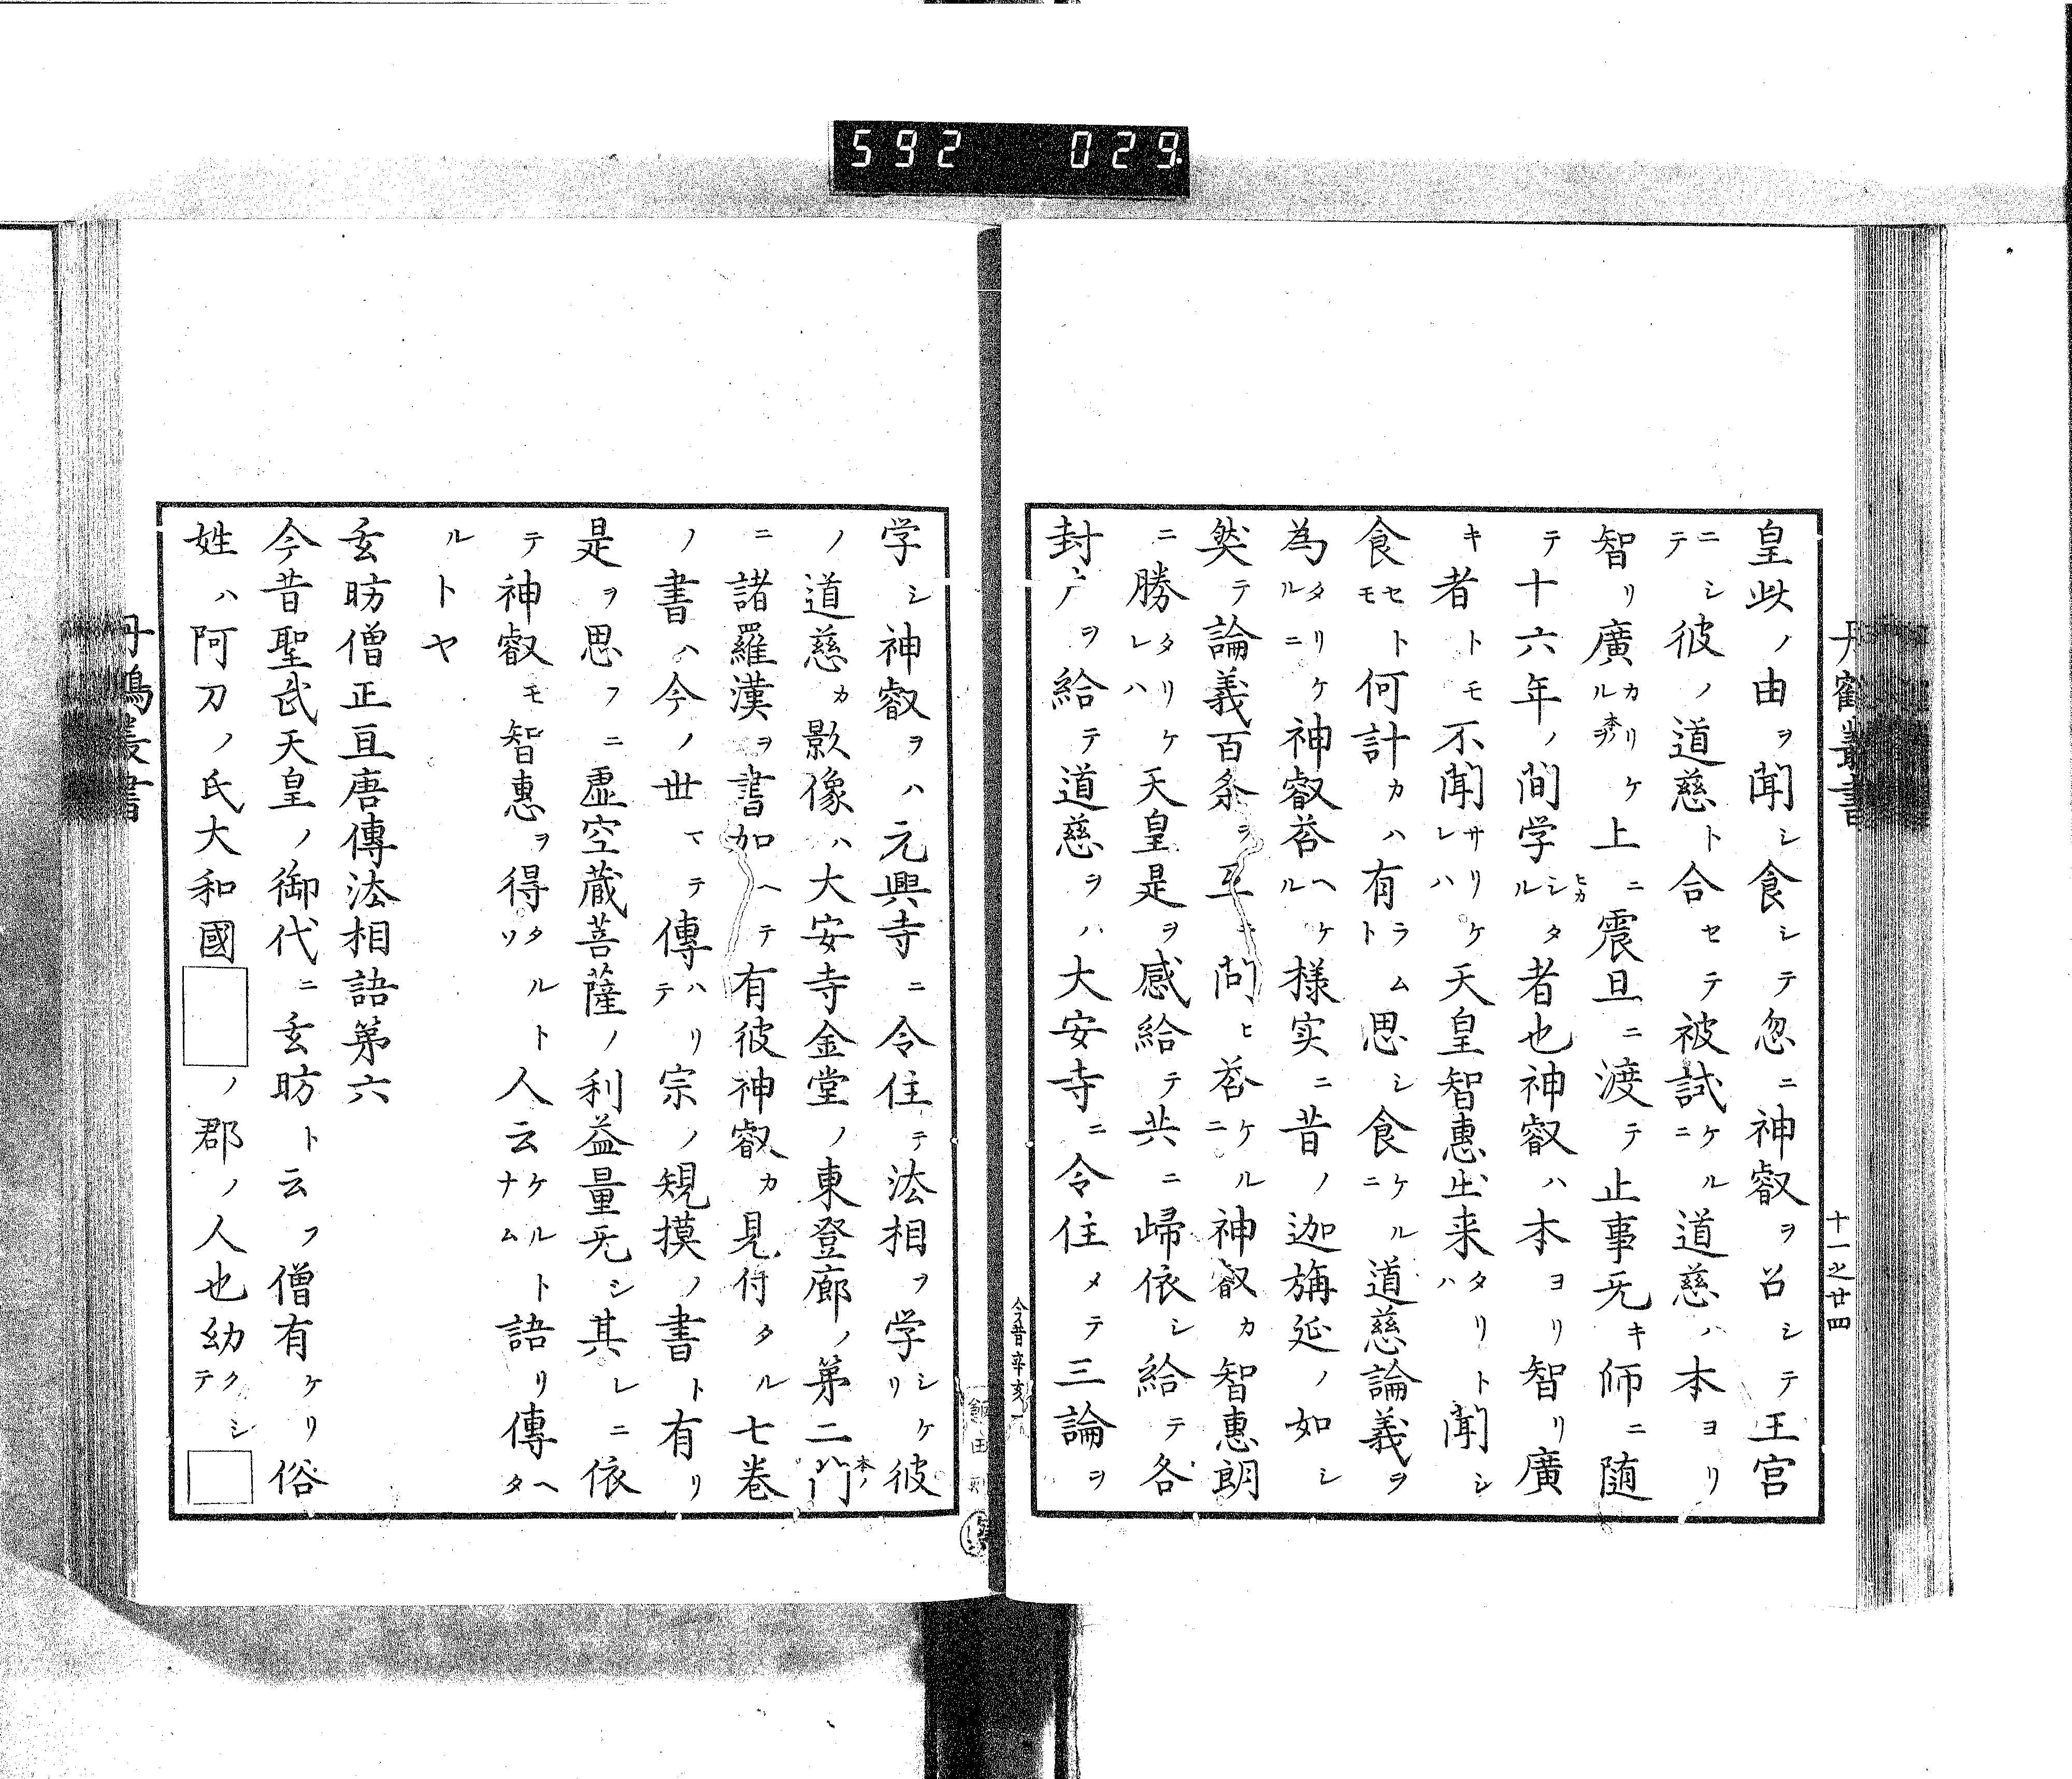 592 029
丹鶴叢書
十一之廿四
皇此ノ由ヲ聞シ食シテ忽ニ神叡ヲ召シテ王宮
ニシテ彼ノ道慈ト合セテ被試ケルニ道慈ハ本ヨリ
智リ廣カリケル上ニ震旦ニ渡テ止事无キ師ニ随
テ十六年ノ間学シタル者也神叡ハ本ヨリ智リ廣
キ者トモ不聞サリケレハ天皇智惠出来タリトハ聞シ
食セトモ何計カハ有ラムト思シ食ケルニ道慈論義ヲ
為タリケルニ神叡荅ヘケル様実ニ昔ノ迦旃延ノ如シ
然テ論義百条ヲ互ニ問ヒ荅ケルニ神叡カ智惠朗
ニ勝タリケレハ天皇是ヲ感給テ共ニ歸依シ給テ各
封戸ヲ給テ道慈ヲハ大安寺ニ令住メテ三論ヲ
今昔辛亥
学シ神叡ヲハ元興寺ニ令住テ法相ヲ学シケリ彼
ノ道慈カ影像ハ大安寺金堂ノ東登廊ノ第二門
ニ諸羅漢ヲ書加ヘテ有彼神叡カ見付タル七巻
ノ書ハ今ノ世マテ傳ハリテ宗ノ規摸ノ書ト有リ
是ヲ思フニ虚空蔵菩薩ノ利益量无シ其レニ依
テ神叡モ智惠ヲ得タルソト人云ケルトナム語リ傳ヘタ
ルトヤ
玄昉僧正亘唐傳法相語第六
今昔聖武天皇ノ御代ニ玄昉ト云フ僧有ケリ俗
姓ハ阿刀ノ氏大和國 ノ郡ノ人也幼クシテ
丹鶴叢書